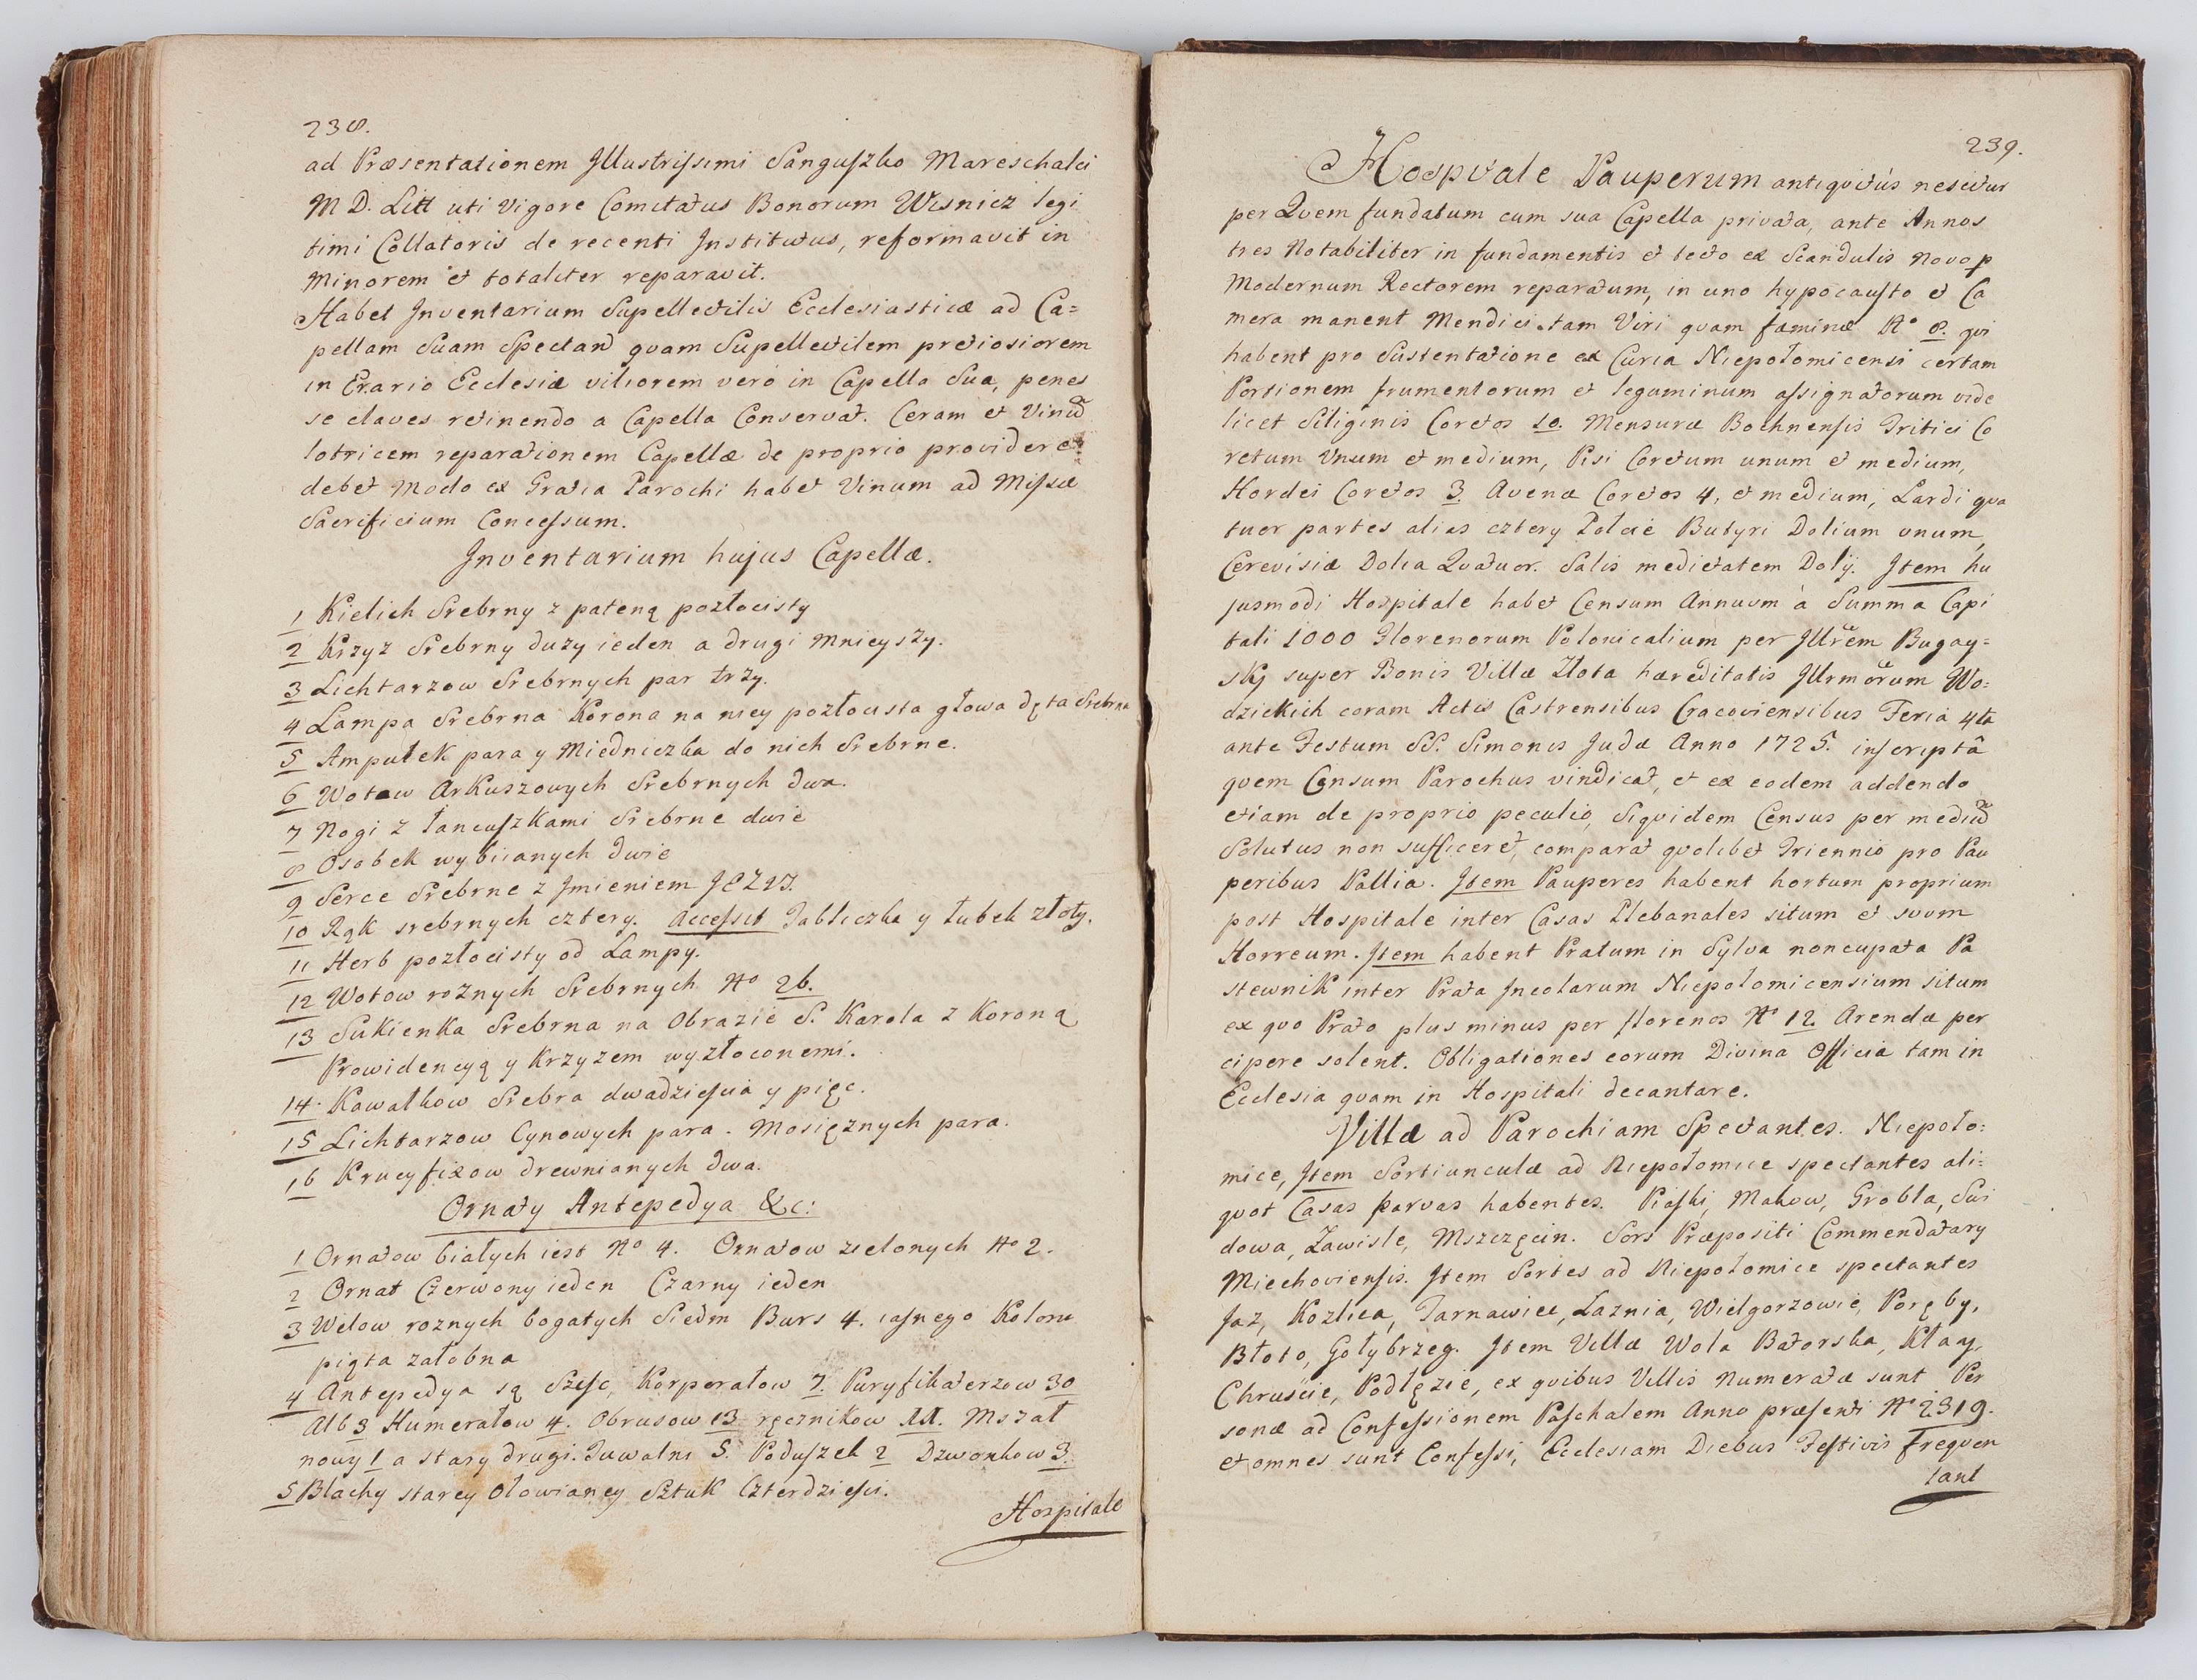 238.
ad Præsentationem Jllustrissimi Sanguszko Mareschalci
M D. Litt uti vigore Comitatus Bonorum Wisnicz legi
timi Collatoris de recenti Institutus, reformavit in
Minorem et totaliter reparavit.
Habet Jnventarium Supellectilis Ecclesiasticæ ad Ca=
pellam Suam Spectan quam Supellectilem pretiosiorem
in Erario Ecclesiæ viliorem vero in Capella Sua, penes
se claves retinendo a Capella Conservat. Ceram et Vinũ
lotricem reparationem Capellæ de proprio providere
debet Modo ex Gratia Parochi habet Vinum ad Missæ
Sacrificium Concessum.
Jnventarium hujus Capellæ.
1 Kielich Srebrny z pateną pozłocisty
2 Krzyz Srebrny duzy ieden a drugi Mnieyszy.
3 Lichtarzow Srebrnych par trzy.
4 Lampa Srebrna Korona na niey pozłocista głowa dęta Srebrna
5 Ampułek para y Miedniczka do nich Srebrne.
6 Wotow Arkuszowych Srebrnych dwa.
7 Nogi z łancuszkami Srebrne dwie
8 Osobek wybiianych dwie
9 Serce Srebrne z Jmieniem JEZUS.
10 Rąk srebrnych cztery. Accessit Tabliczka y Łubek złoty.
11 Herb pozłocisty od Lampy.
12 Wotow roznych Srebrnych No 26.
13 Sukienka Srebrna na Obrazie S. Karola z Koroną
Prowidencyą y Krzyzem wyzłoconemi.
14. Kawałkow Srebra dwadziescia y pięc.
15 Lichtarzow Cynowych para. Mosięznych para.
16 Krucyfixow drewnianych dwa.
Ornaty Antepedya &c:
1 Ornatow białych iest No 4. Ornatow zielonych No 2.
2 Ornat Czerwony ieden Czarny ieden
3 Welow roznych bogatych Siedm Burs 4. iasnego Koloru
piąta załobna
4 Antepedya są Szesc, Korporałow 7. Puryfikaterzow 30
Alb 3 Humerałow 4. Obrusow 13 ręcznikow 11. Mszał
nowy 1 a stary drugi. Tuwalni 5. Poduszek 2 Dzwonkow 3.
5 Blachy starey Ołowianey Sztuk Czterdziesci.
Hospitale
239.
Hospitale Pauperum antiquitùs nescitur
per Quem fundatum cum sua Capella privata, ante Annos
tres Notabiliter in fundamentis et tecto ex Scandulis Novo p
Modernum Rectorem reparatum, in uno hypocausto et Ca
mera manent Mendici tam Viri quam fæminæ No 8. qui
habent pro Sustentatione ex Curia Niepołomicensi certam
Portionem frumentorum et leguminum assignatorum vide
licet Siliginis Coretos 10. Mensuræ Bochnensis Tritici Co
retum Unum et medium, Pisi Coretum unum et medium,
Hordei Coretos 3. Avenæ Coretos 4, et medium, Lardi qua
tuor partes alias cztery Połcie Butyri Dolium unum,
Cerevisiæ Dolia Quatuor. Salis medietatem Dolij. Jtem hu
jusmodi Hospitale habet Censum Annuum à Summa Capi
tali 1000 Florenorum Polonicalium per Jllrem Bugay=
skj super Bonis Villæ Złota hæreditatis Jllrmorum Wo=
dzickich coram Actis Castrensibus Cracoviensibus Feria 4ta
ante Festum SS. Simonis Judæ Anno 1725. inscriptâ
quem Censum Parochus vindicat, et ex eodem addendo
etiam de proprio peculio, Siquidem Census per mediũ
Solutus non sufficeret, comparat quolibet Triennio pro Pau
peribus Pallia. Jtem Pauperes habent hortum proprium
post Hospitale inter Casas Plebanales situm et suum
Horreum. Jtem habent Pratum in Sylva noncupata Pa
stewnik inter Prata Jncolarum Niepolomicensium situm
ex quo Prato plus minus per florenos No 12. Arendæ per
cipere solent. Obligationes eorum Divina Officia tam in
Ecclesia quam in Hospitali decantare.
Villæ ad Parochiam Spectantes. Niepoło=
mice, Jtem Sortiunculæ ad Niepołomice spectantes ali=
quot Casas parvas habentes. Piaski, Makow, Grobla, Swi
dowa, Zawisle, Mszczęcin. Sors Præpositi Commendatary
Miechoviensis. Jtem Sortes ad Niepołomice spectantes
Jaz, Kozlica, Tarnawice, Łaznia, Wielgorzowie, Poręby,
Błoto, Gołybrzeg. Jtem Villæ Wola Batorska, Kłay,
Chruście, Podłęzie, ex quibus Villis Numeratæ sunt Per
sonæ ad Confessionem Paschalem Anno præsenti No 2319.
et omnes sunt Confessi, Ecclesiam Diebus Festivis frequen
tant